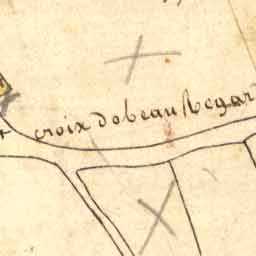 croix dobeau Regar